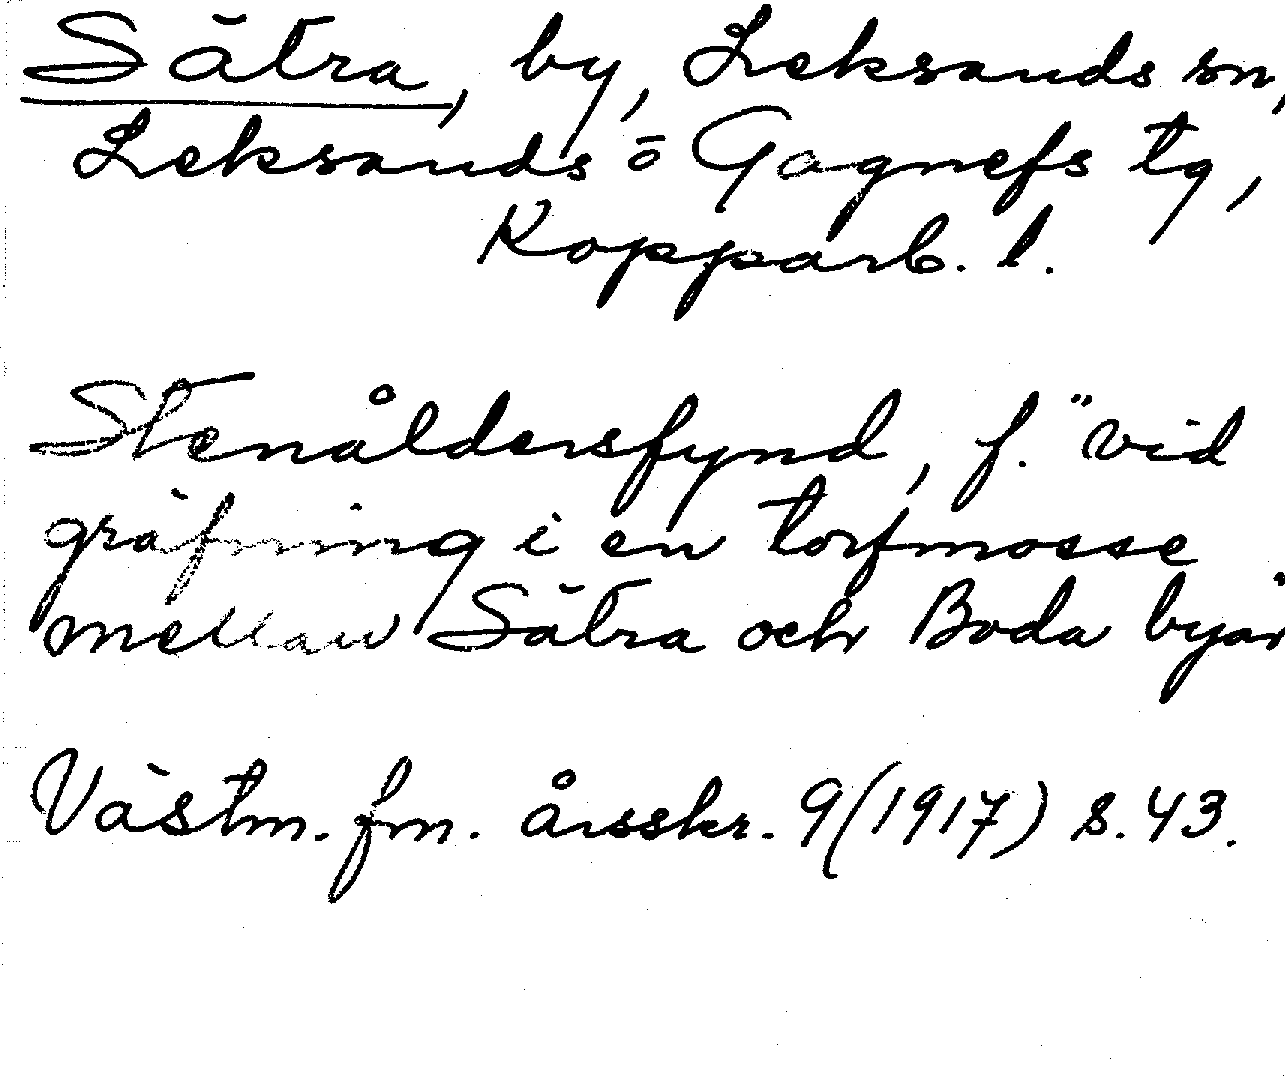 Sätra, by, Leksands sn,
Leksands ō Gagnefs tg,
Kopparb. l.
Stenåldersfynd, f. "vid
gräfning i en torfmosse
mellan Sätra och Boda byar"
Västm. fm. årsskr. 9(1917) s. 43.